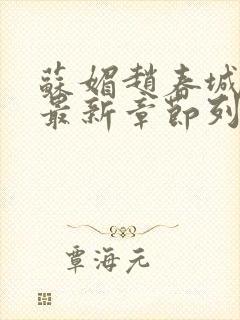 蘇媚趙春城
最新章節列
覃海元